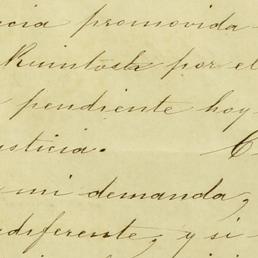 cia promovida
Quintosh por el
pendiente hoy
usticia. C
mi demanda,
diferente, y si